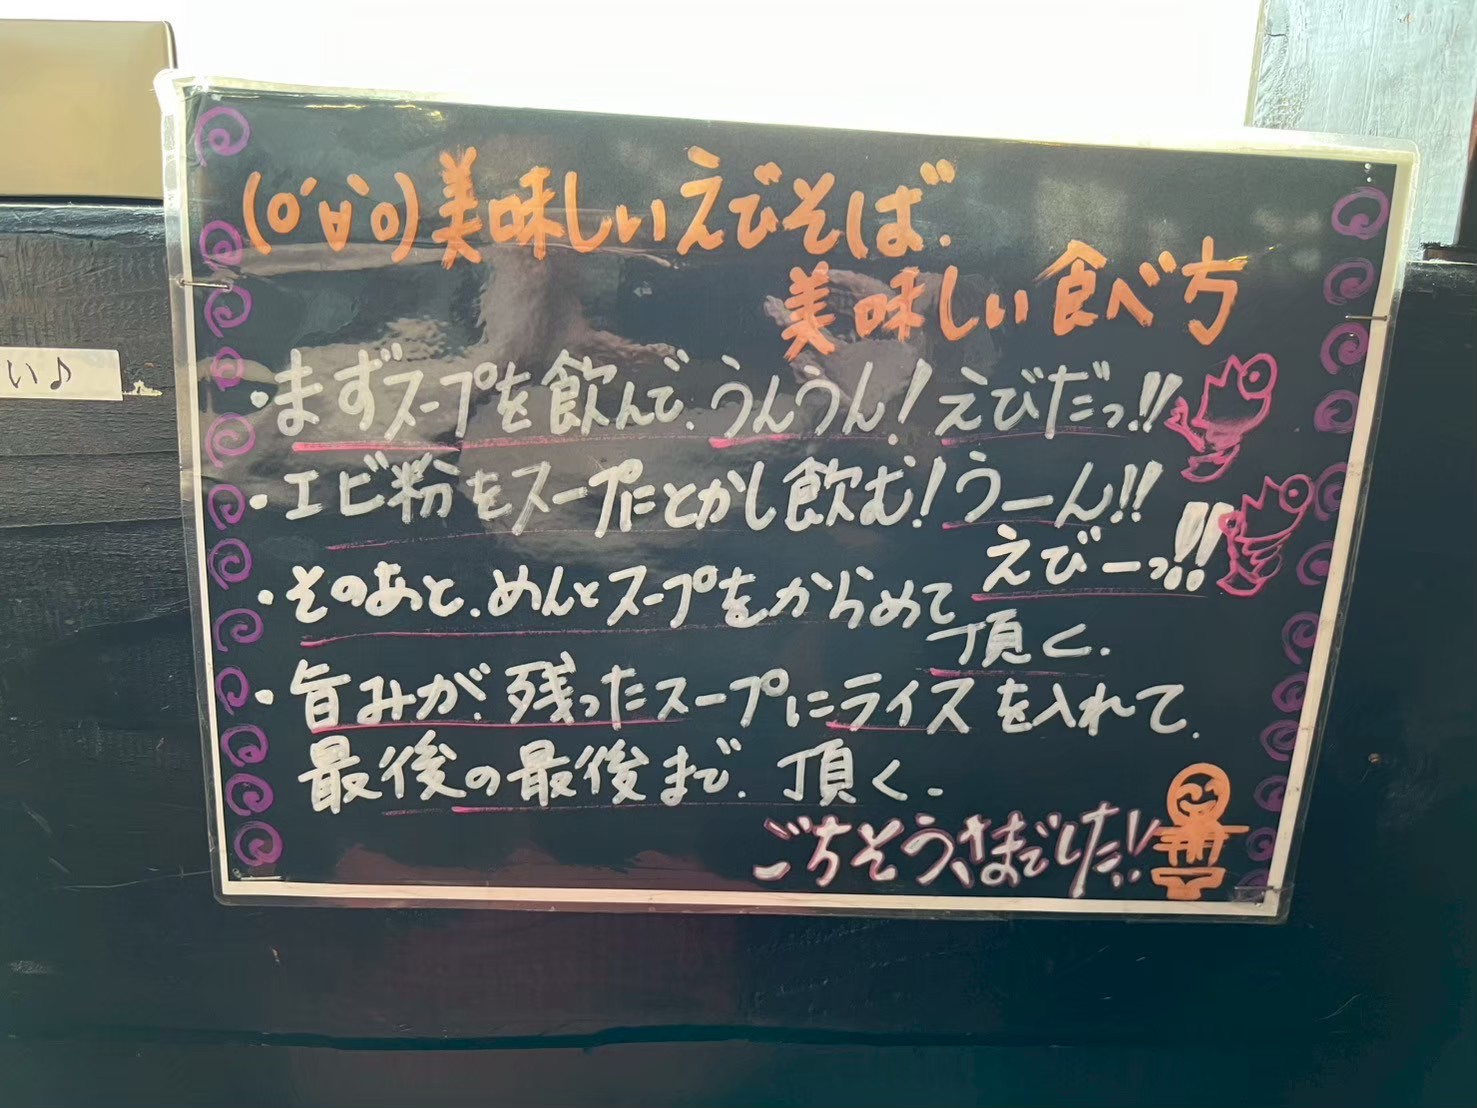 (o´∀`o)美味しいえびそば、
美味しい食べ方
・まずスープを飲んで、うんうん!えびだっ!!
・エビ粉をスープにとかし飲む!うーん!!
えびーっ!!
・そのあと、めんとスープをからめて
頂く、
・旨みが、残ったスープにライスを入れて、
最後の最後まで、頂く、
ごちそうさまでした!!
い♪